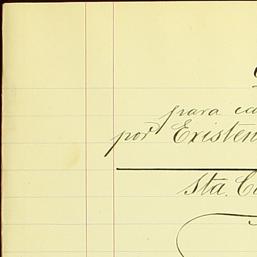 para ca
por Existen
Sta. Ca